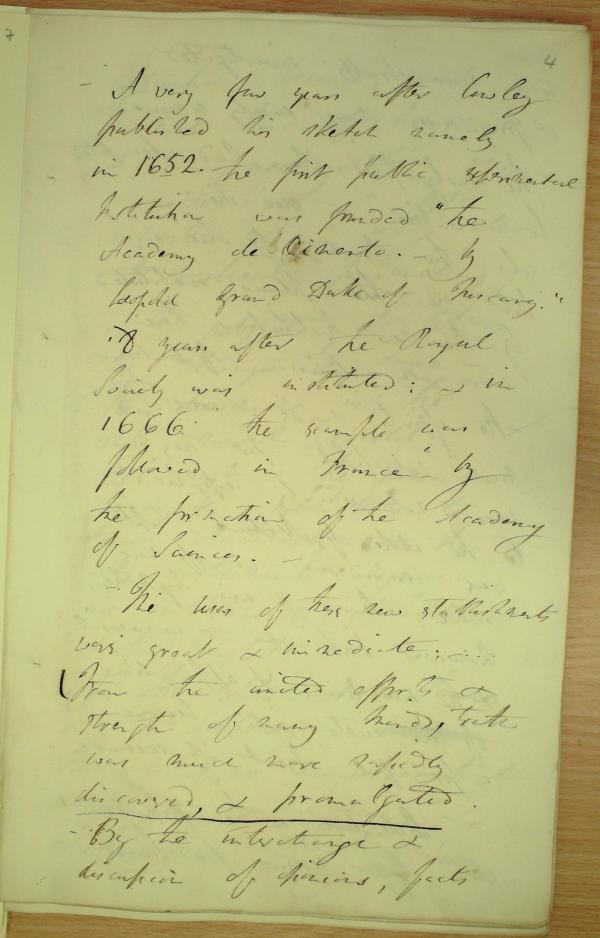 7
4
– A very few years after Cowley
published his sketch namely
in 1652. the first public experimental
Institution was founded "the
Academy de Cimento. – by
Leopold Grand Duke of Tuscany."
8 years after the Royal
Society was instituted: & in
1666 the example was
followed in France" – by
the formation of the Academy
of Sciences. –
– The uses of these new establishments
were great & immediate; ...
From the united efforts &
strength of many minds, truth
was much more rapidly
discovered, & promulgated.
– By the interchange &
discussion of opinions, facts